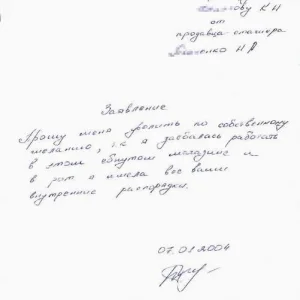 К Н
от
продавца-кассира
Н В
Заявление
Прошу меня уволить по собственному
желанию, т.к. я заебалась работать
в этом ебнутом магазине и
в рот я имела все ваши
внутренние распорядки.
07.01.2004